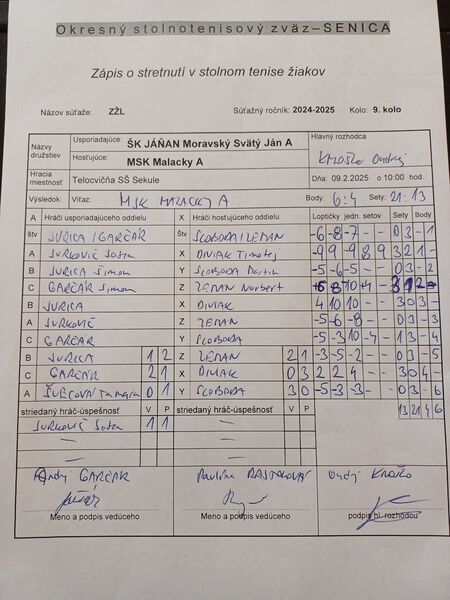 Okresný stolnotenisový zväz – SENICA
Zápis o stretnutí v stolnom tenise žiakov
Názov súťaže: ZŽL Súťažný ročník: 2024-2025 Kolo: 9. kolo
Názvy družstiev Usporiadajúce: ŠK JÁŇAN Moravský Svätý Ján A Hlavný rozhodca
Hosťujúce: MSK Malacky A Knoško Ondrej
Hracia miestnosť Telocvičňa SŠ Sekule Dňa: 09.2.2025 o 10:00 hod.
Výsledok: Víťaz: MSK MALACKY A Body: 6:4 Sety: 21:13
A Hráči usporiadajúceho oddielu X Hráči hosťujúceho oddielu Loptičky jedn. setov Sety Body
štv JURICA / GARČÁR Štv SLOBODA / ZEMAN -6 -8 -7 - - 0 3 - 1
A JURKOVIČ X DIVIAK Timotej -9 9 -9 8 9 3 2 1 -
B JURICA Šimon Y SLOBODA Martin -5 -6 -5 - - 0 3 - 2
C GARČÁR Šimon Z ZEMAN Norbert
B JURICA X DIVIAK 4 10 10 - - 3 0 3 -
A JURKOVIČ Z ZEMAN -5 -6 -8 - - 0 3 - 3
C GARČÁR Y SLOBODA -5 -3 10 -4 - 1 3 - 4
B JURICA 1 2 Z ZEMAN 2 1 -3 -5 -2 - - 0 3 - 5
C GARČÁR 2 1 X DIVIAK 0 3 2 2 4 - - 3 0 4 -
A ŠVECOVÁ Tamara 0 1 Y SLOBODA 3 0 -5 -3 -3 - - 0 3 - 6
striedaný hráč-úspešnosť V P striedaný hráč-úspešnosť V P 13 21 4 6
JURKOVIČ 1 1 —
— —
— —
Ondrej GARČÁR Paulína Ondrej Knoško
Meno a podpis vedúceho Meno a podpis vedúceho podpis hl. rozhodcu